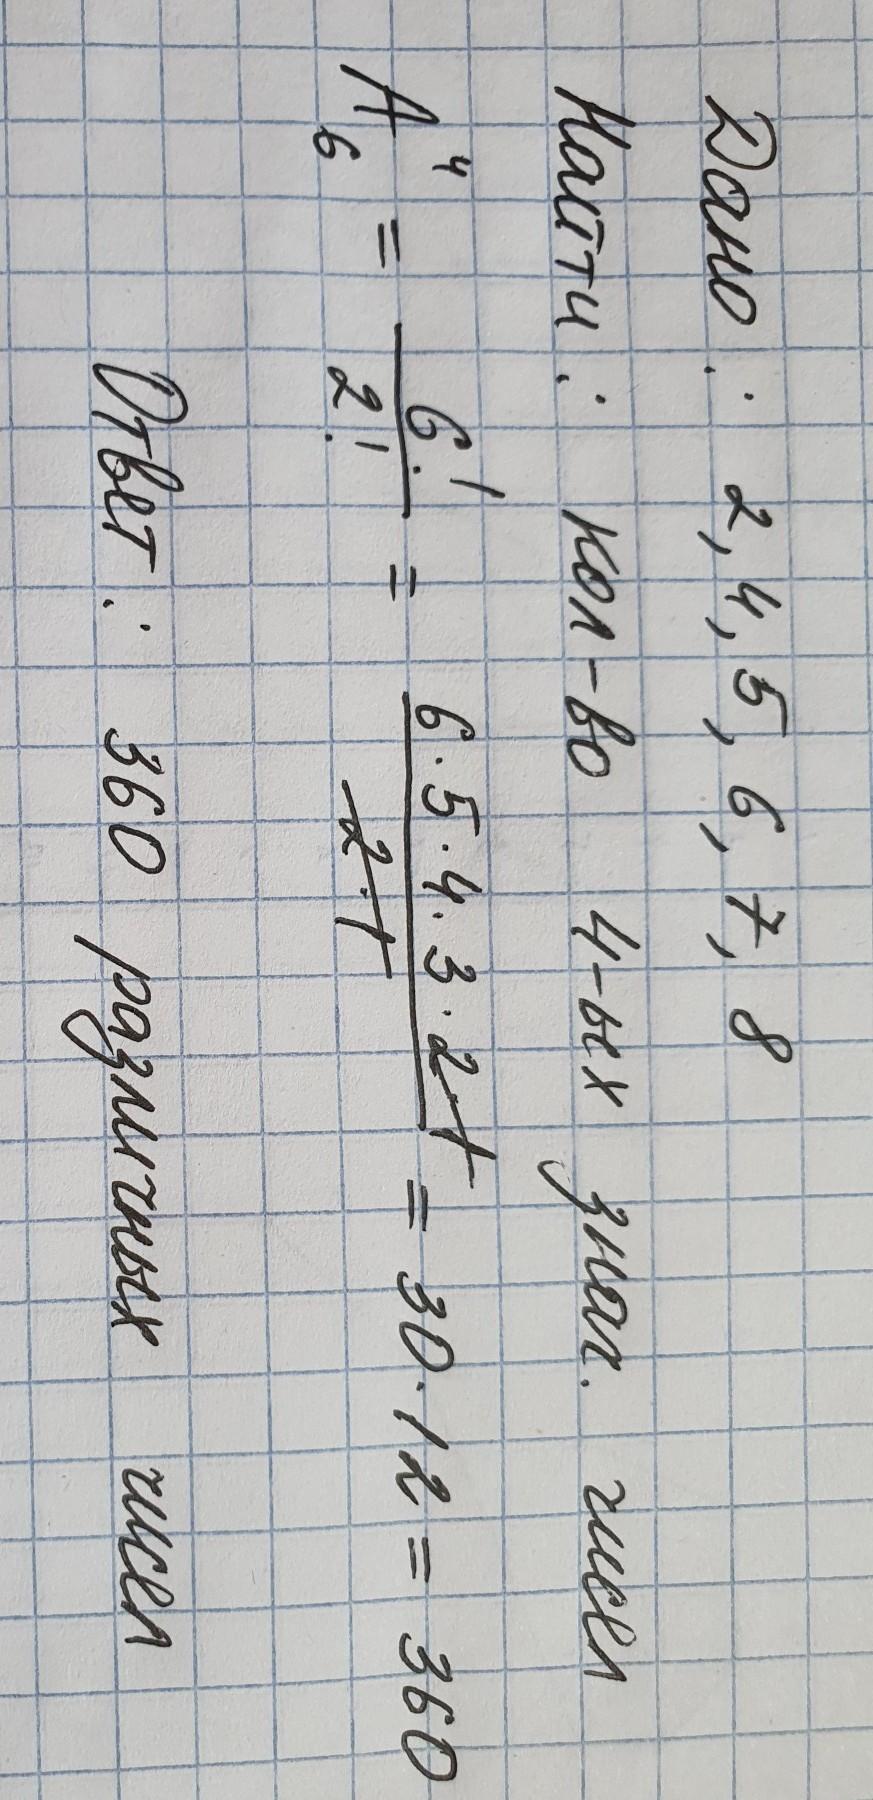 Дано: 2, 4, 5, 6, 7, 8
Найти: кол-во 4-ых знач. чисел
A₆⁴ = 6!/2! = 6·5·4·3·2·1/2·1 = 30·12 = 360
Ответ: 360 различных чисел